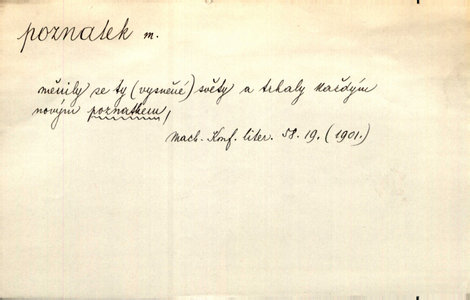 poznatek m.
měnily se ty (vysněné) světy a trhaly každým
novým poznatkem,
Mach. Konf. liter. 58. 19. (1901.)